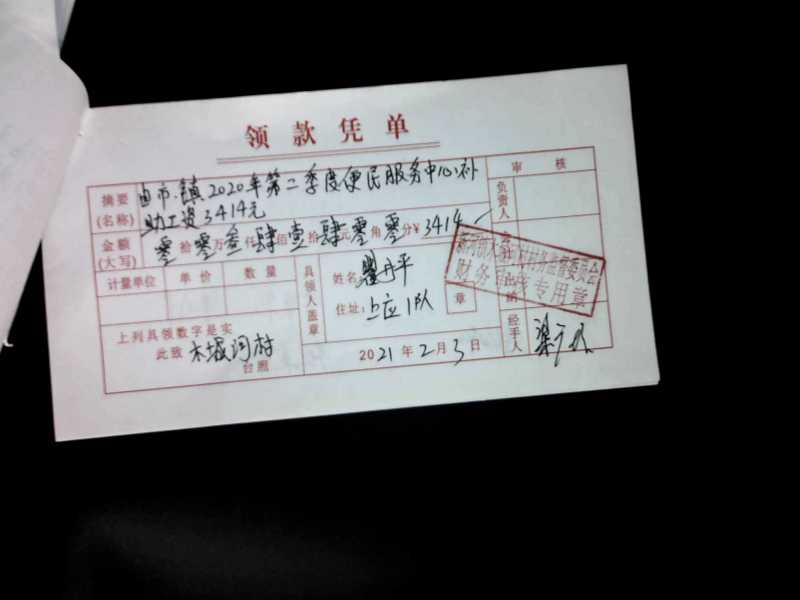 领款凭单
摘要(名称) 由市.镇2020年第二季度便民服务中心补
助工资3414元
审核
负责人
金额(大写) 零拾零万叁仟肆佰壹拾肆元零角零分¥3414
计量单位 单价 数量
具领人盖章
姓名 丹平
住址: 上应1队
章
财务 专用章
上列具领数字是实
此致 木堰河村
台照
2021年2月3日
经手人